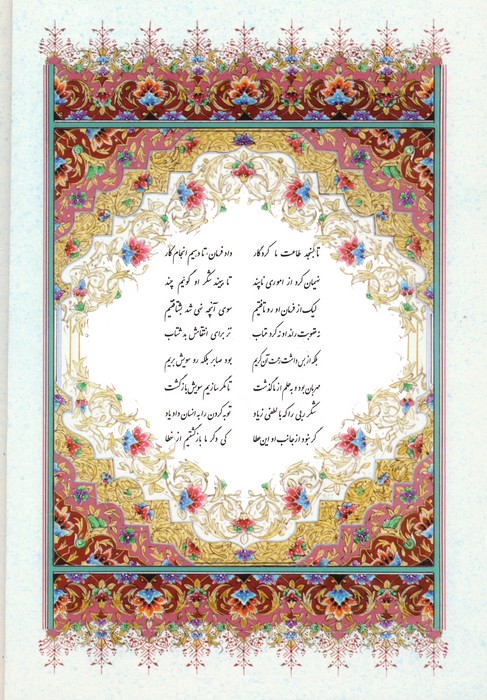 تا بسنجد طاعت ما کردگار داد فرمان، تا دهیم انجام کار
نهیمان کرد از اموری ناپسند تا ببیند شکر او گوئیم چند
لیک از فرمان او رو تافتیم سوی آنچه نهی شد بشتافتیم
نه عقوبت راند او نه کرد عتاب نز برای انتقامش بد شتاب
بلکه از بس داشت رحمت آن کریم بود صابر بلکه رو سویش بریم
مهربان بود و به حلم از ما گذشت تا مگر سازیم سویش بازگشت
شکر ربی را که با لطفی زیاد توبه کردن را به انسان داد یاد
گر نبود از جانب او این عطا کی دگر ما بازگشتیم از خطا